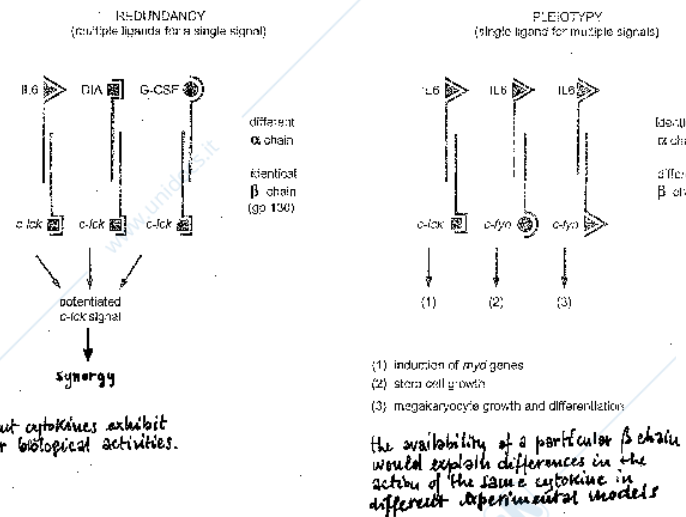 REDUNDANCY
(multiple ligands for a single signal)
IL6 DIA G-CSF
different
α chain
identical
β chain
(gp 130)
c-lck c-lck c-lck
potentiated
c-lck signal
synergy
cytokines exhibit
biological activities.
PLEIOTYPY
(single ligand for multiple signals)
IL6 IL6 IL6
α
β
c-lck c-fyn c-fyn
(1) (2) (3)
(1) induction of myd genes
(2) stem cell growth
(3) megakaryocyte growth and differentiation
the availability of a particular β chain
would explain differences in the
action of the same cytokine in
different experimental models
www.unidocs.it